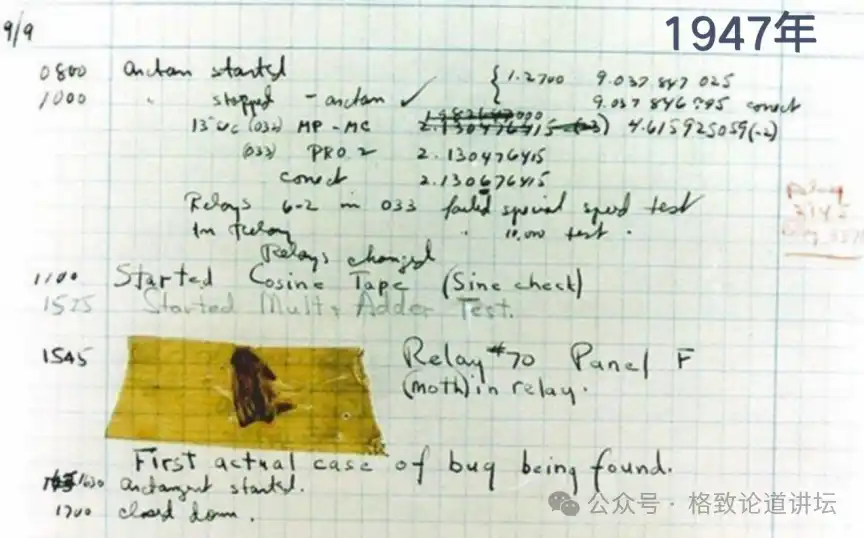 1947年
9/9
0800 arctan started { 1.2700 9.037 847 025
1000 " stopped - arctan ✓ 9.037 846 795 correct
13"uc (032) MP - MC 2.130476415 4.615925059(-2)
(033) PRO 2 2.130476415
correct 2.130676415
Relays 6-2 in 033 failed special speed test
In Relay " 10.000 test .
Relays changed
1100 Started Cosine Tape (Sine check)
1525 Started Mult+ Adder Test.
1545 Relay #70 Panel F
(moth) in relay.
First actual case of bug being found.
1630 arctangent started.
1700 closed down.
公众号 · 格致论道讲坛